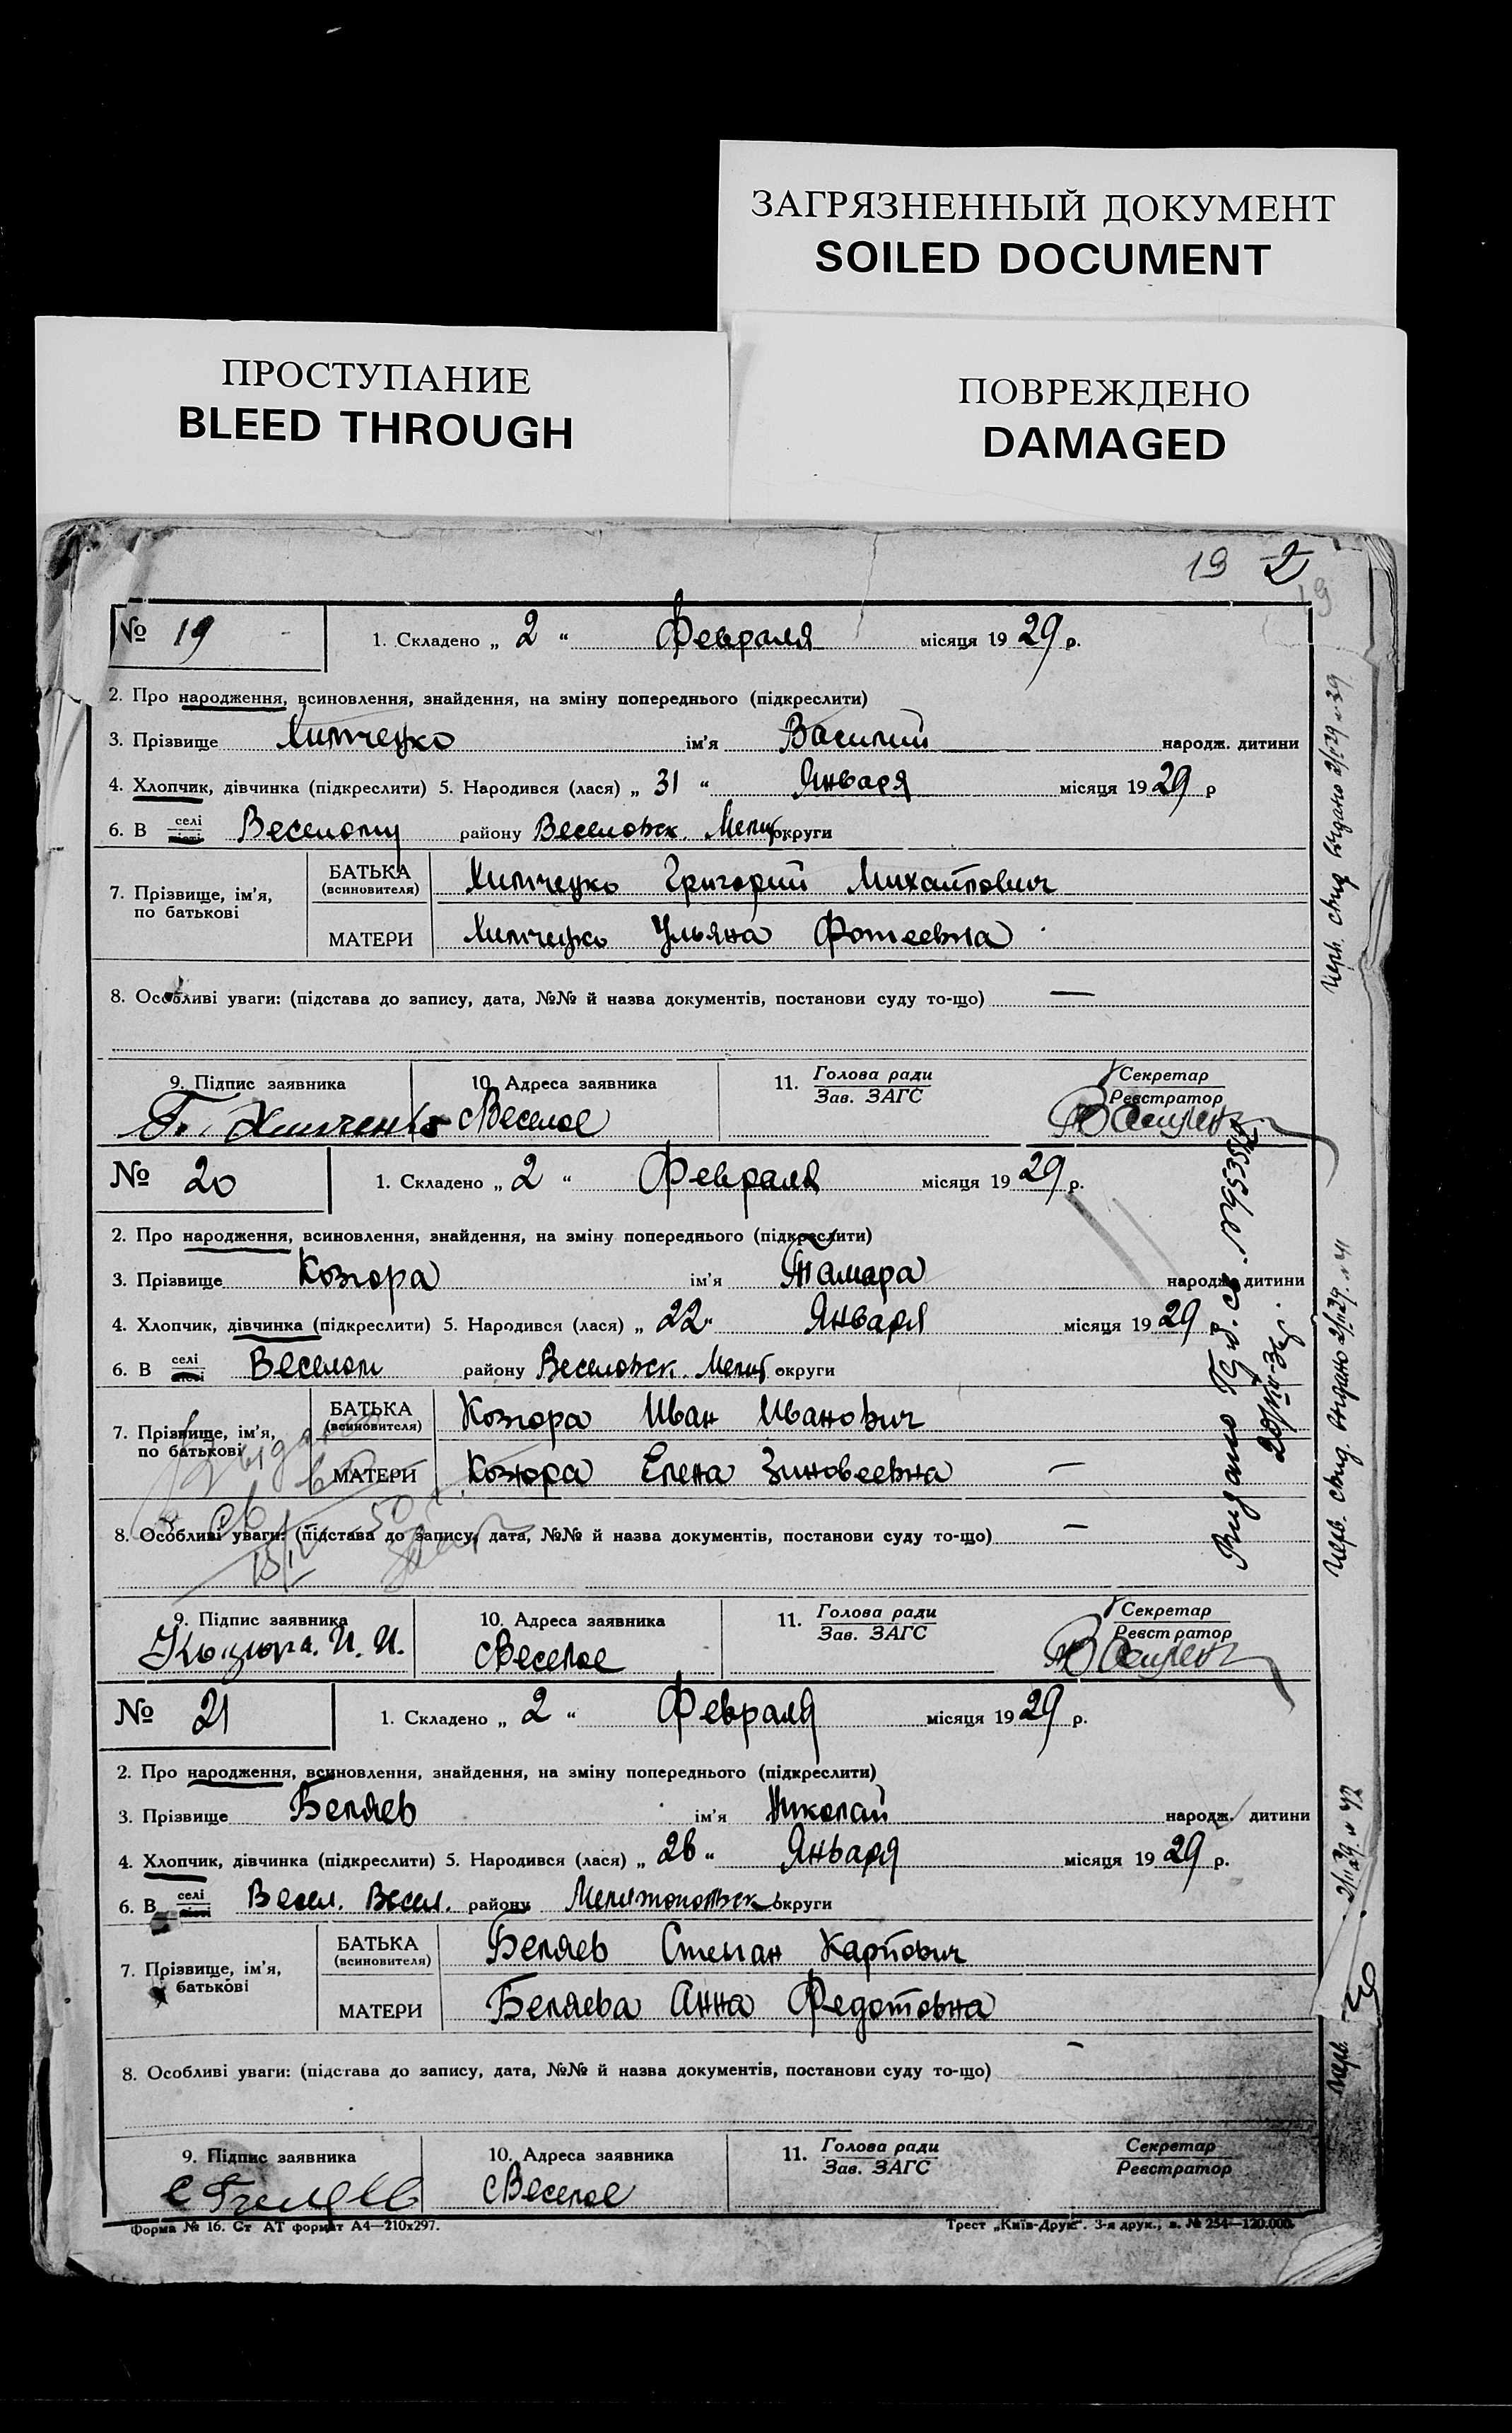 ЗАГРЯЗНЕННЫЙ ДОКУМЕНТ
SOILED DOCUMENT
ПРОСТУПАНИЕ
BLEED THROUGH
ПОВРЕЖДЕНО
DAMAGED
19 2
19
№ 19 1. Складено „ 2 “ Февраля місяця 19 29 р.
2. Про народження, всиновлення, знайдення, на зміну попереднього (підкреслити)
3. Прізвище Химченко ім'я Василий народж. дитини
4. Хлопчик, дівчинка (підкреслити) 5. Народився (лася) „ 31 “ Января місяця 19 29 р
6. В селі Веселому району Веселовск. Мелит округи
7. Прізвище, ім'я, по батькові
БАТЬКА (всиновителя) Химченко Григорий Михайлович
МАТЕРИ Химченко Ульяна Фотеевна
8. Особливі уваги: (підстава до запису, дата, №№ й назва документів, постанови суду то-що) —
9. Підпис заявника 10. Адреса заявника 11. Голова ради Зав. ЗАГС Секретар Реєстратор
Г. Химченко с Веселое
№ 20 1. Складено „ 2 “ Февраля місяця 19 29 р.
2. Про народження, всиновлення, знайдення, на зміну попереднього (підкреслити)
3. Прізвище Козюра ім'я Тамара народж. дитини
4. Хлопчик, дівчинка (підкреслити) 5. Народився (лася) „ 22 “ Января місяця 19 29
6. В селі Веселом району Веселовск. Мелит округи
7. Прізвище, ім'я, по батькові
БАТЬКА (всиновителя) Козюра Иван Иванович
МАТЕРИ Козюра Елена Зиновеевна —
8. Особливі уваги: (підстава до запису, дата, №№ й назва документів, постанови суду то-що) —
9. Підпис заявника 10. Адреса заявника 11. Голова ради Зав. ЗАГС Секретар Реєстратор
Козюра. И. И. с Веселое
№ 21 1. Складено „ 2 “ Февраля місяця 19 29 р.
2. Про народження, всиновлення, знайдення, на зміну попереднього (підкреслити)
3. Прізвище Беляев ім'я Николай народж. дитини
4. Хлопчик, дівчинка (підкреслити) 5. Народився (лася) „ 26 “ Января місяця 19 29 р.
6. В селі Весел. Весел. району Мелитопольск округи
7. Прізвище, ім'я, батькові
БАТЬКА (всиновителя) Беляев Степан Карпович
МАТЕРИ Беляева Анна Федотовна
8. Особливі уваги: (підстава до запису, дата, №№ й назва документів, постанови суду то-що) —
9. Підпис заявника 10. Адреса заявника 11. Голова ради Зав. ЗАГС Секретар Реєстратор
С Беляев с Веселое
Форма № 16. Ст АТ формат А4—210х297. Трест „Київ-Друк“. 3-я друк., з. № 254—120.000.